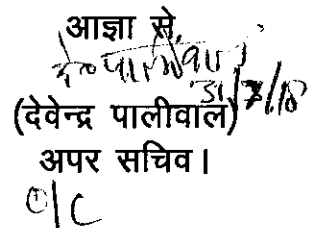 आज्ञा से,
31/7/18
(देवेन्द्र पालीवाल)
अपर सचिव।
O/C